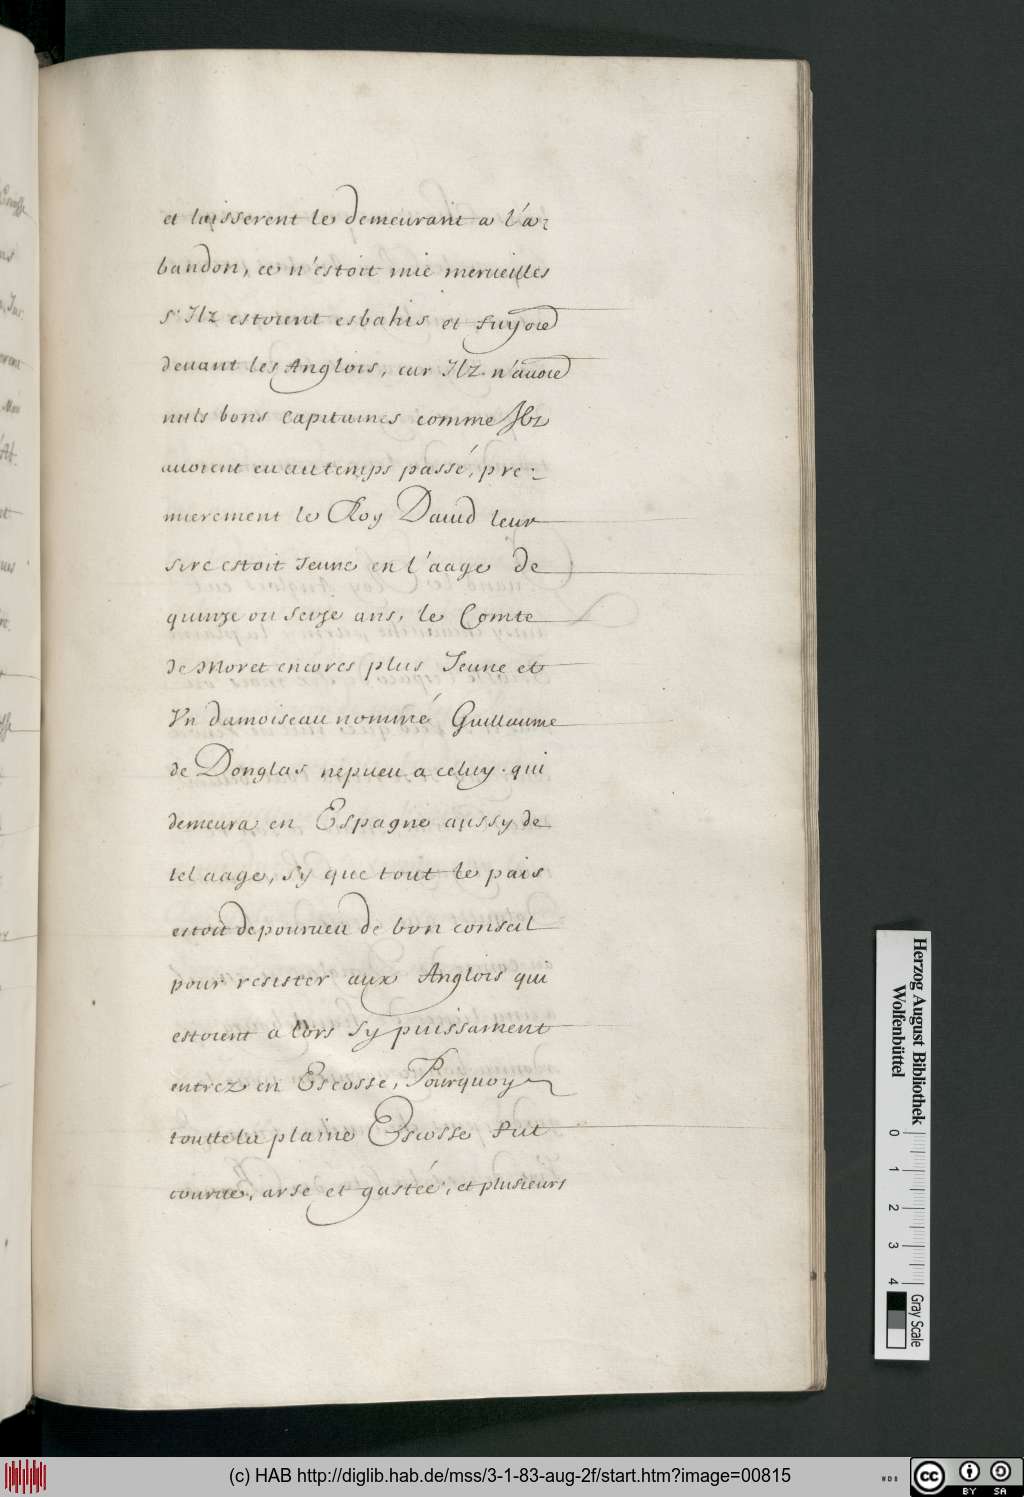 et laisserent le demeurant a l'a-
bandon, ce n'estoit mie merueilles
s'Ilz estoient esbahis et fuyoiẽt
deuant les Anglois, car Ilz n'auoiẽt
nuls bons Capitaines comme Ilz
auoient eu au temps passé, pre-
mierement le Roy Dauid leur
sire estoit Jeune en l'aage de
quinze ou seize ans, le Comte
de Moret encores plus Jeune et
Vn damoiseau nommé Guillaume
de Donglas nepueu a celuy qui
demeura en Espagne aussy de
tel aage, sy que tout le pais
estoit depourueu de bon conseil
pour resister aux Anglois qui
estoient alors sy puissament
entrez en Escosse, Pourquoy
toutte la plaine Escosse fut
courue, arse et gastée, et plusieurs
Herzog August Bibliothek
Wolfenbüttel
0 1 2 3 4
Gray Scale
(c) HAB http://diglib.hab.de/mss/3-1-83-aug-2f/start.htm?image=00815
cc BY SA